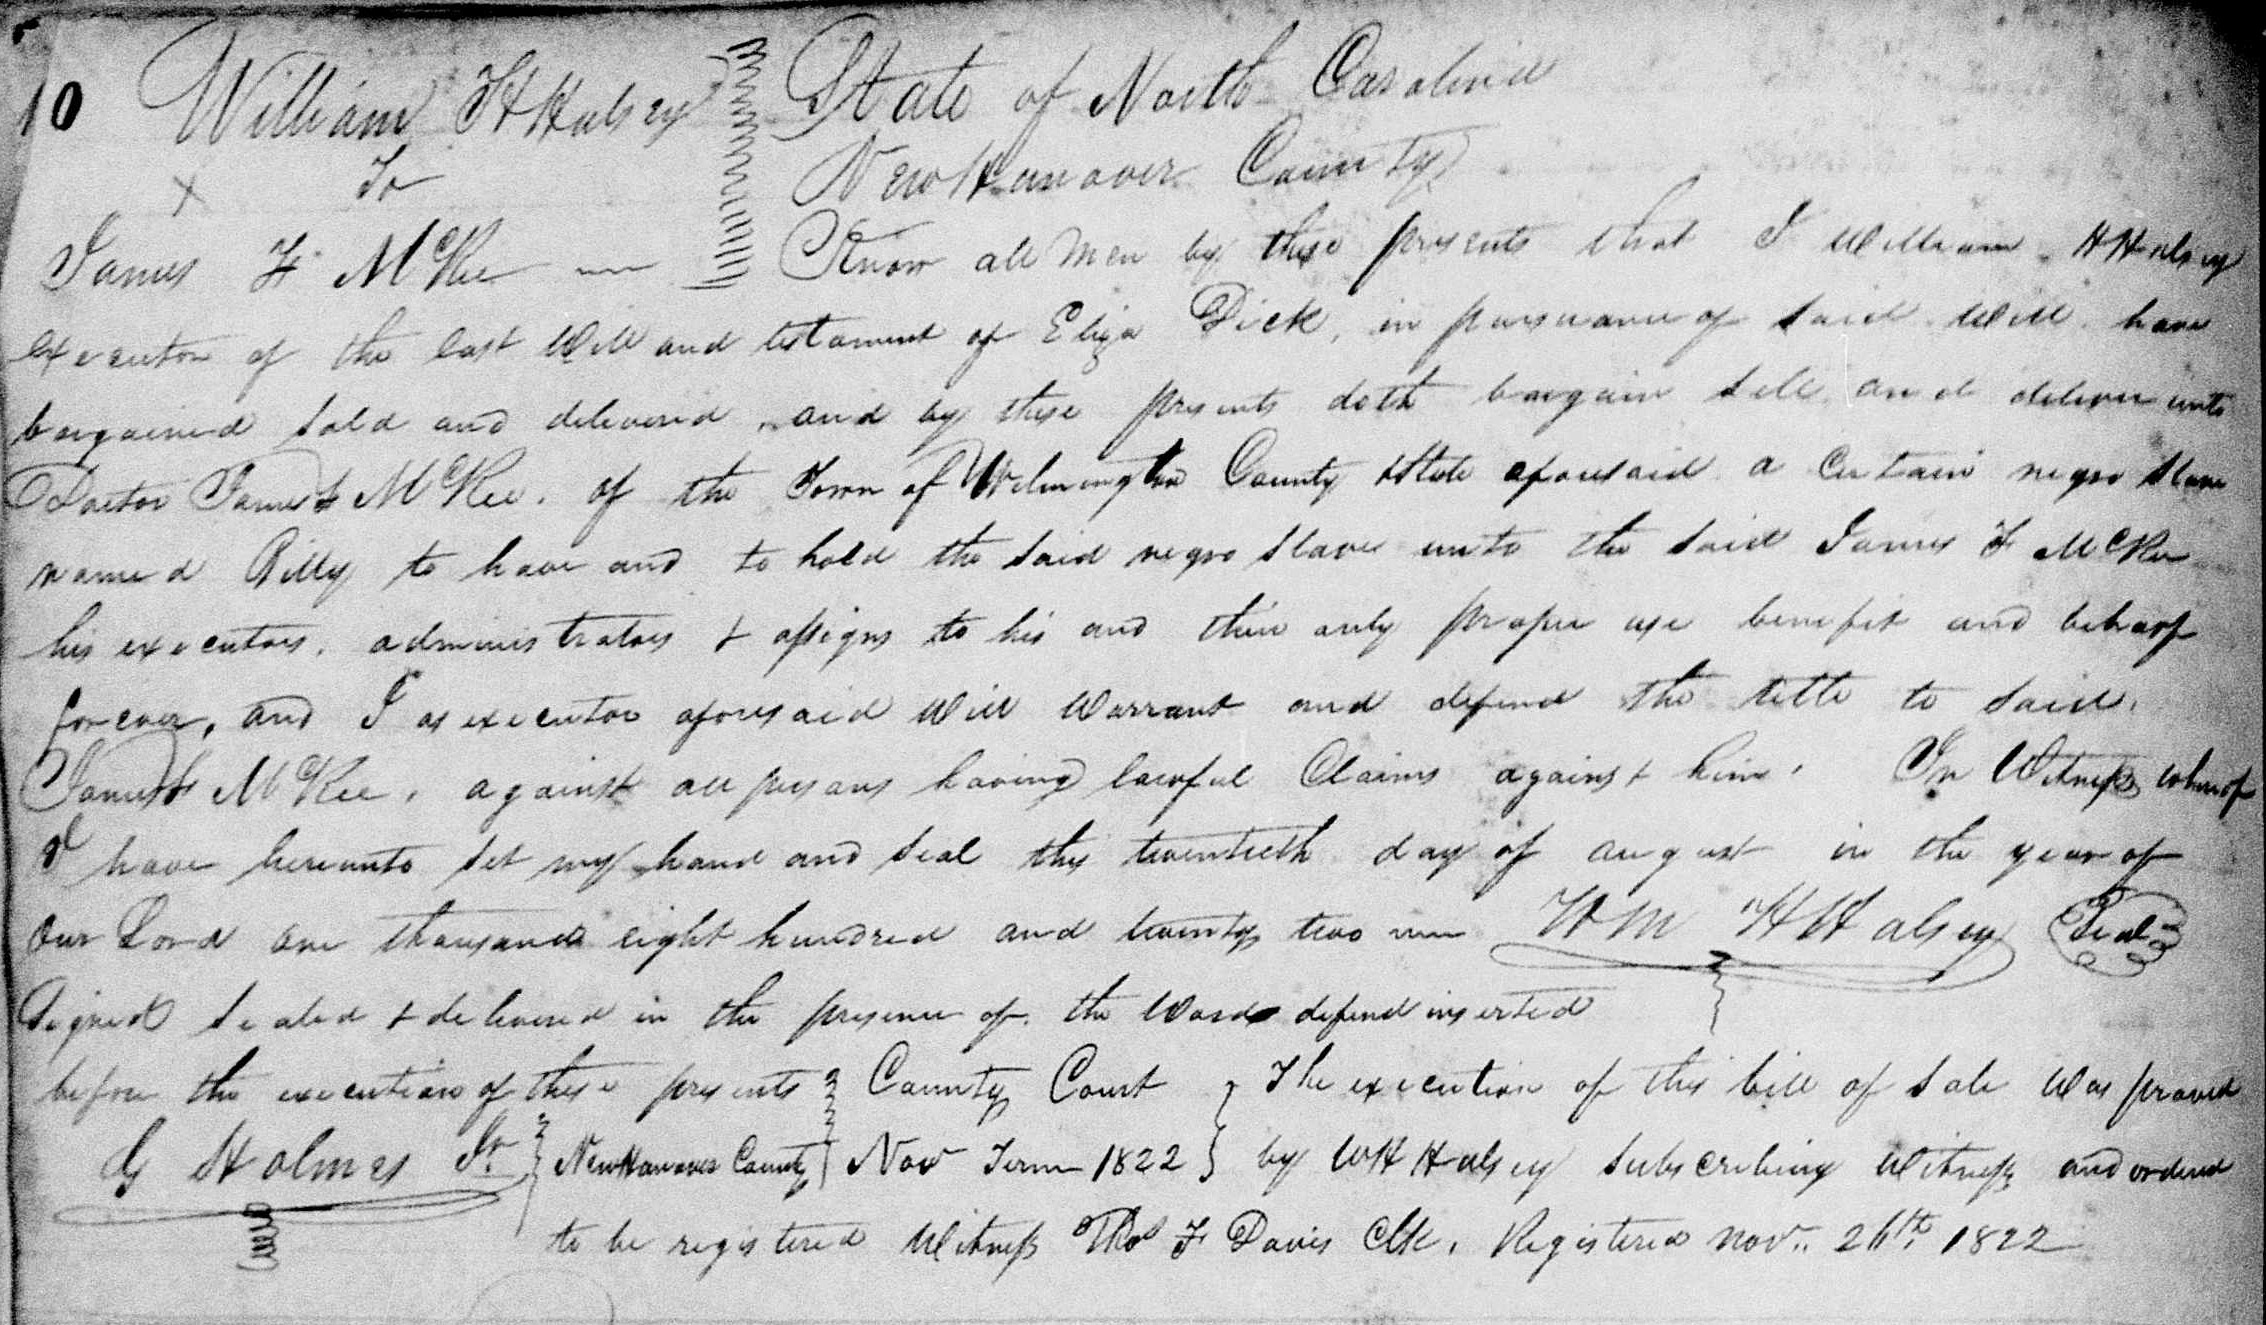 10 William H Halsey State of North Carolina
To New Hanover County
James F McRee Know all men by these presents that I William H Halsey
executor of the last Will and testament of Eliza Dick, in pursuance of said Will have
bargained sold and delivered, and by these presents doth bargain sell and deliver unto
Doctor James F McRee. of the Town of Wilmington County & State aforesaid a certain negro slave
named Billy to have and to hold the said negro slave unto the said James F McRee
his executors, administrators & assigns to his and their only proper use benefit and behoof
forever, and I as executor aforesaid will warrant and defend the title to said.
James F McRee, against all persons having lawful Claims against him. In Witness whereof
I have hereunto set my hand and seal this twentieth day of august in the year of
our Lord one thousand eight hundred and twenty two Wm H Halsey Seal
Signed sealed & delivered in the presence of. the Words defend inserted
before the execution of these presents County Court The execution of this bill of sale was proved
G Holmes Jr. New Hanover County Nov Term 1822 by W H Halsey subscribing Witness and ordered
to be registered Witness Thos F Davis Clk. Registered Nov. 26th. 1822